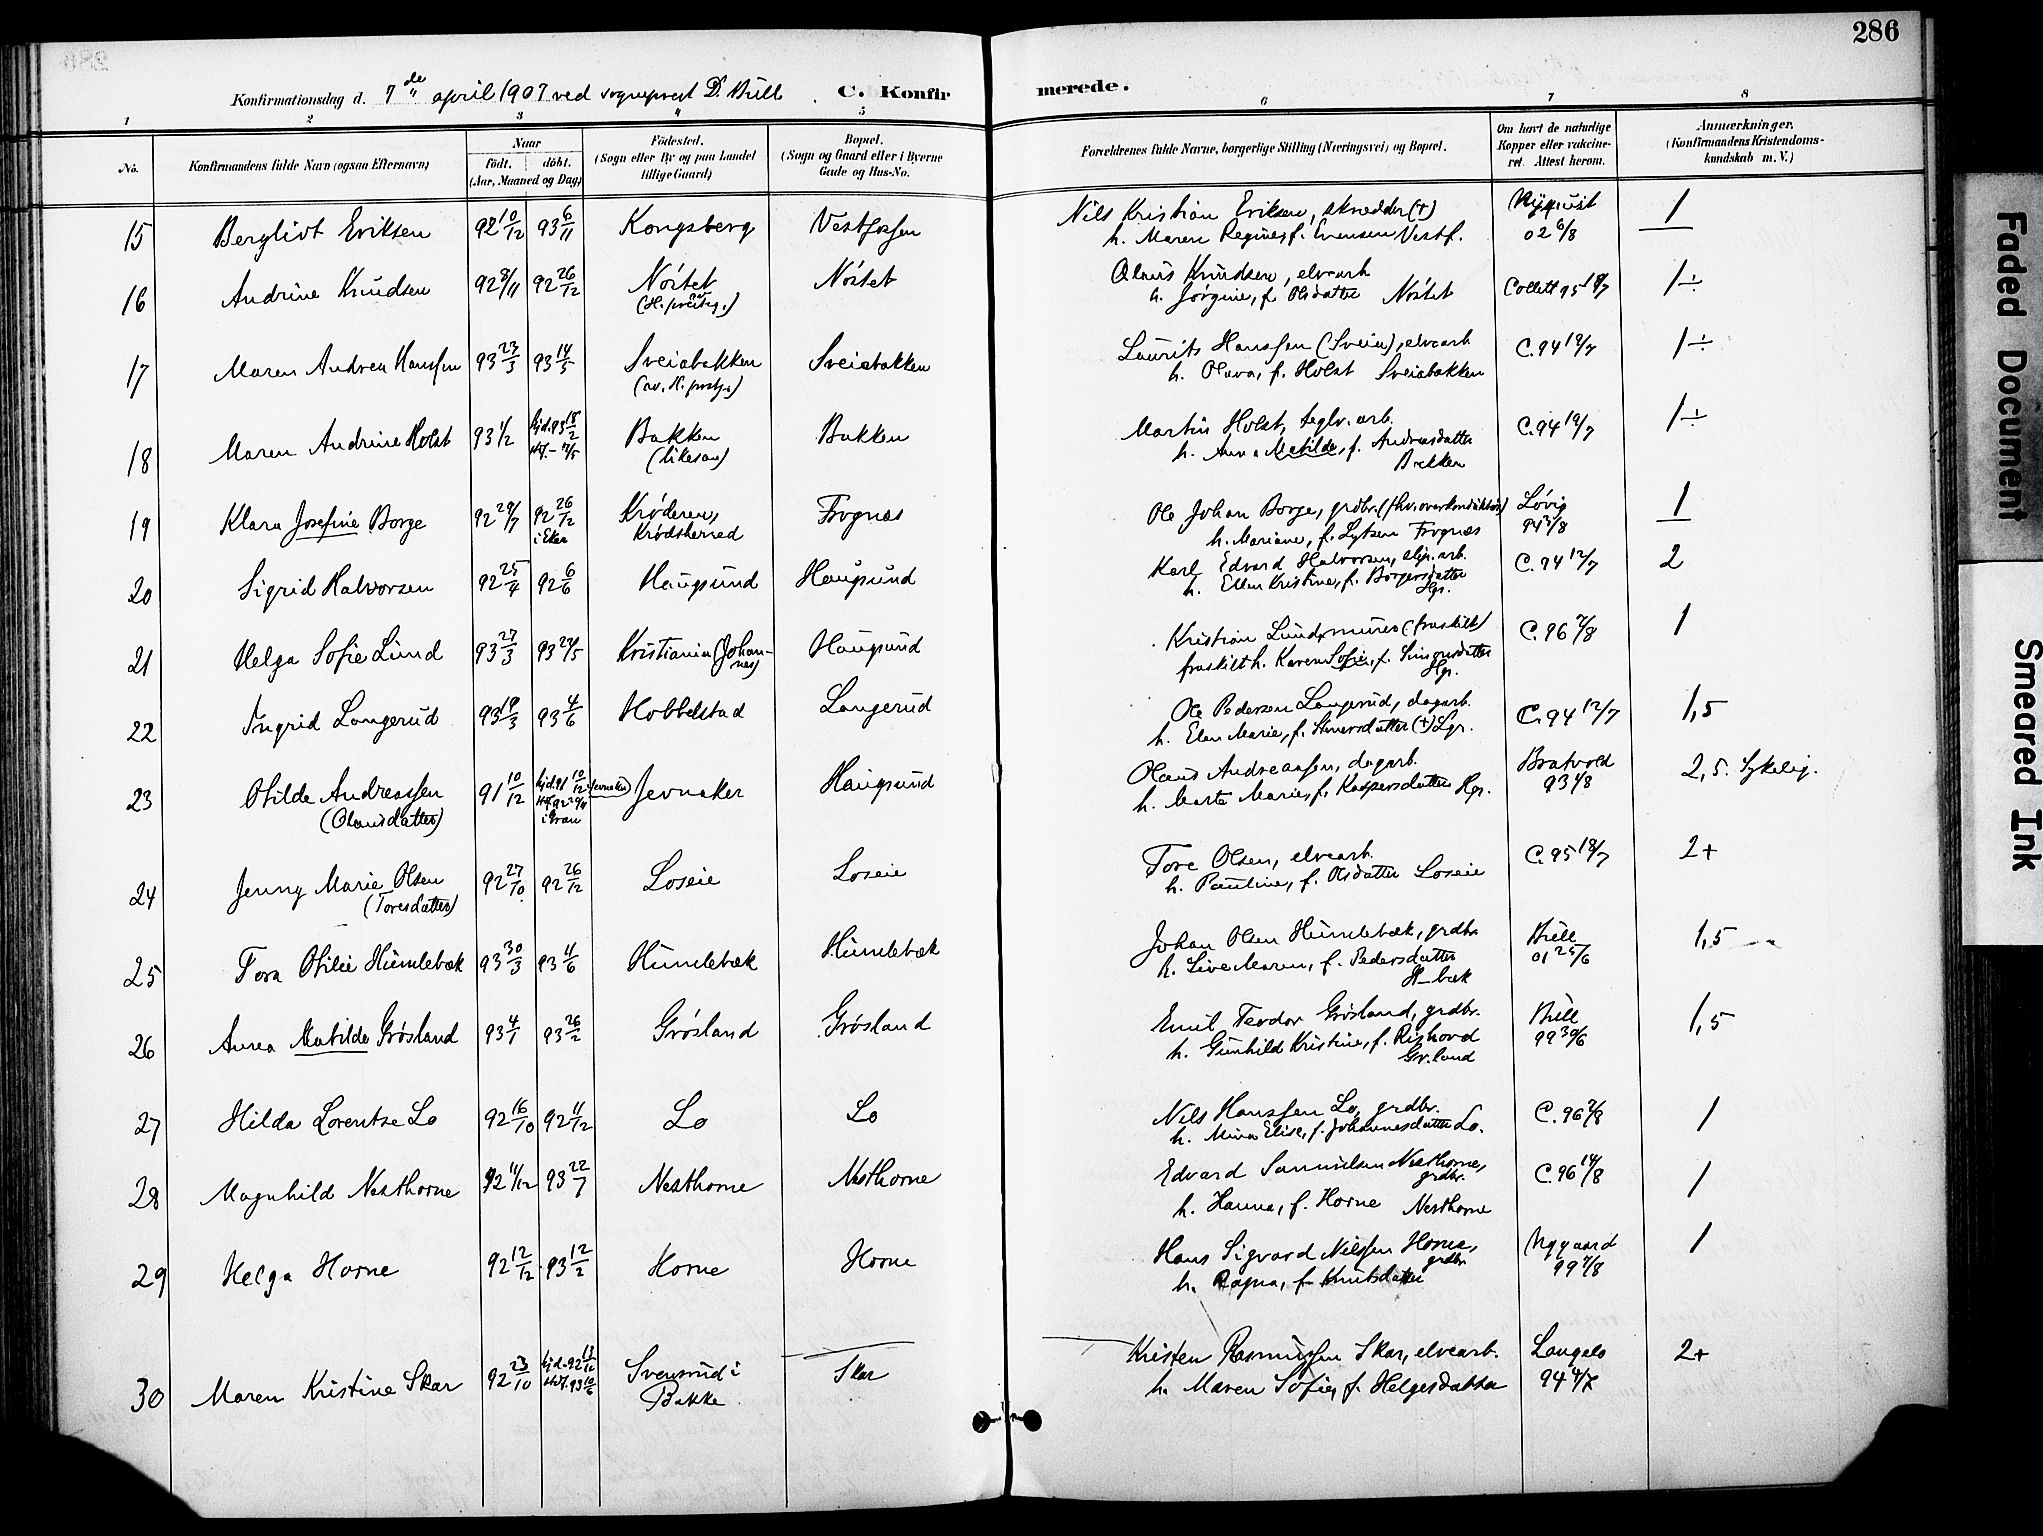 286
Konfirmationsdag d. 7de april 1907 ved sogneprest D. Bull. C. Konfirmerede.
1 2 3 4 5 6 7 8
No. Konfirmandens fulde Navn (ogsaa Efternavn) Naar født. døbt. (Aar, Maaned og Dag) Fødested. (Sogn eller By og paa Landet tillige Gaard) Bopæl. (Sogn og Gaard eller i Byerne Gade og Hus-No. Forældrenes fulde Navne, borgerlige Stilling (Næringsvei) og Bopæl. Om havt de naturlige Kopper eller vaccineret. Attest herom. Anmærkninger. (Konfirmandens Kristendomskundskab m. V.)
15 Bergliot Eriksen 92 10/12 93 6/11 Kongsberg Vestfossen Nils Kristian Eriksen, skredder (+) Nyquist 1
h. Maren Regine, f. Evensen Vestf. 02 6/8
16 Andrine Knudsen 92 8/11 92 26/12 Nøstet Nøstet Olaus Knudsen, elvearb. Collett 95 18/7 1÷
h. Jørgine, f. Olsdatter Nøstet
17 Maren Andrea Hanssen 93 23/3 93 14/5 Sveiabakken Sveiabakken Laurits Hanssen (Sveia), elvearb. C. 94 12/7 1÷
h. Olava, f. Holst Sveiabakken
18 Maren Andrine Holst 93 1/2 hjd. 93 18/2 Bakken Bakken Martin Holst, teglv. arb. C. 94 12/7 1÷
(likesaa) h. Anna Matilde, f. Andreasdatter
Bakken
19 Klara Josefine Borge 92 29/7 92 26/12 Krøderen, Frognes Ole Johan Borge, grdbr. Løvig 1
i Eker Krødsherred h. Mariane, f. Lytsen Frognes
20 Sigrid Halvorsen 92 25/4 92 6/6 Haugsund Haugsund Karl Edvard Halvorsen, slip. arb. C. 94 12/7 2
h. Ellen Kristine, f. Borgersdatter
Hgs.
21 Helga Sofie Lund 93 27/3 93 27/5 Kristiania (Johannes) Haugsund Kristian Lund, murer (fraskilt) C. 96 7/8 1
fraskilt h. Karen Sofie, f. Simonsdatter
Hgs.
22 Ingrid Langerud 93 19/3 93 4/6 Hobbelstad Langerud Ole Pedersen Langerud, dagarb. C. 94 12/7 1,5
h. Elen Marie, f. (+) Lgr.
23 Otilde Andreassen 91 10/12 hjd. 91 10/12 (Jevnaker) Jevnaker Haugsund Olaus Andreassen, dagarb. Bratvold 2,5. Sykelig.
(Olausdatter) i Gran h. Marte Marie, f. Kaspersdatter Hgs.
24 Jenny Marie Olsen 92 27/10 92 26/12 Loseie Loseie Tore Olsen, elvearb. C. 95 18/7 2+
(Toresdatter) h. Pauline, f. Olsdatter Loseie
25 Tora Otilie Humlebæk 93 30/3 93 4/6 Humlebæk Humlebæk Johan Olsen Humlebæk, grdbr. Bull 1,5
h. Live Maren, f. Pedersdatter 01 25/6
H-bæk
26 Anna Matilde Grøsland 93 4/1 93 26/2 Grøsland Grøsland Emil Teodor Grøsland, grdbr. Bull 1,5
h. Gunhild Kristine, f. Rishovd 99 30/6
Gr.land
27 Hilda Lorentse Lo 92 16/10 92 11/12 Lo Lo Nils Hanssen Lo, grdbr. C. 96 7/8 1
h. Mina Elise, f. Johannesdatter Lo.
28 Magnhild Nesthorne 92 11/12 93 22/7 Nesthorne Nesthorne Edvard Samuelsen Nesthorne, grdbr. C. 96 14/8 1
h. Hanna, f. Horne Nesthorne
29 Helga Horne 92 12/12 93 12/2 Horne Horne Hans Sigvard Nilssen Horne, grdbr. Nygaard 1
h. Ragna, f. Knutsdatter 99 7/8
30 Maren Kristine Skar 92 23/10 hjd. 92 13/12 Svensrud i Skar Kristen Rasmussen Skar, elvearb. Langelo 2+
Bakke h. Maren Sofie, f. Helgesdatter
Faded Document
Smeared Ink